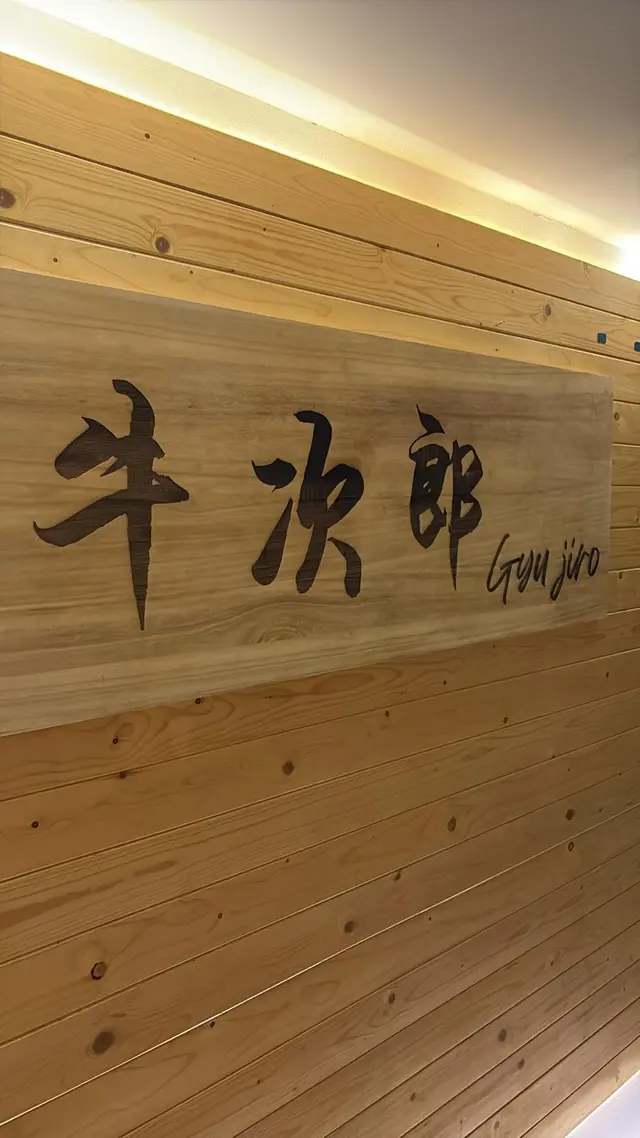 牛次郎
Gyu jiro